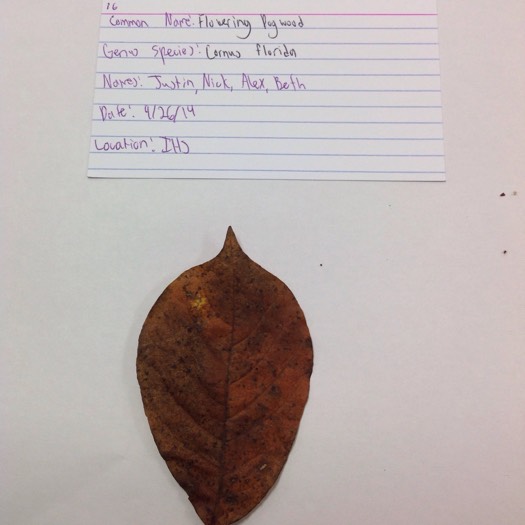 16
Common Name: Flowering Dogwood
Genus Species: Cornus florida
Names: Justin, Nick, Alex, Beth
Date: 9/26/14
Location: IHS